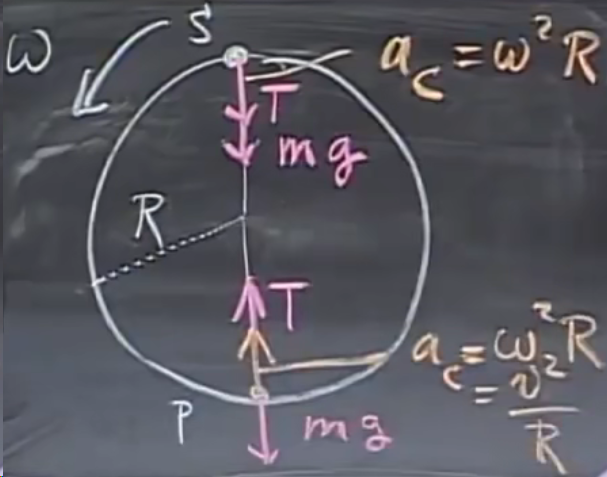 S
ω
a_c = ω²R
T
mg
R
T
a_c = ω²R
= v²/R
P
mg